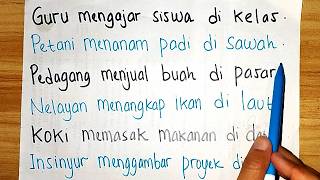 Guru mengajar siswa di kelas.
Petani menanam padi di sawah.
Pedagang menjual buah di pasar
Nelayan menangkap Ikan di laut
Koki memasak makanan di
Insinyur menggambar proyek di